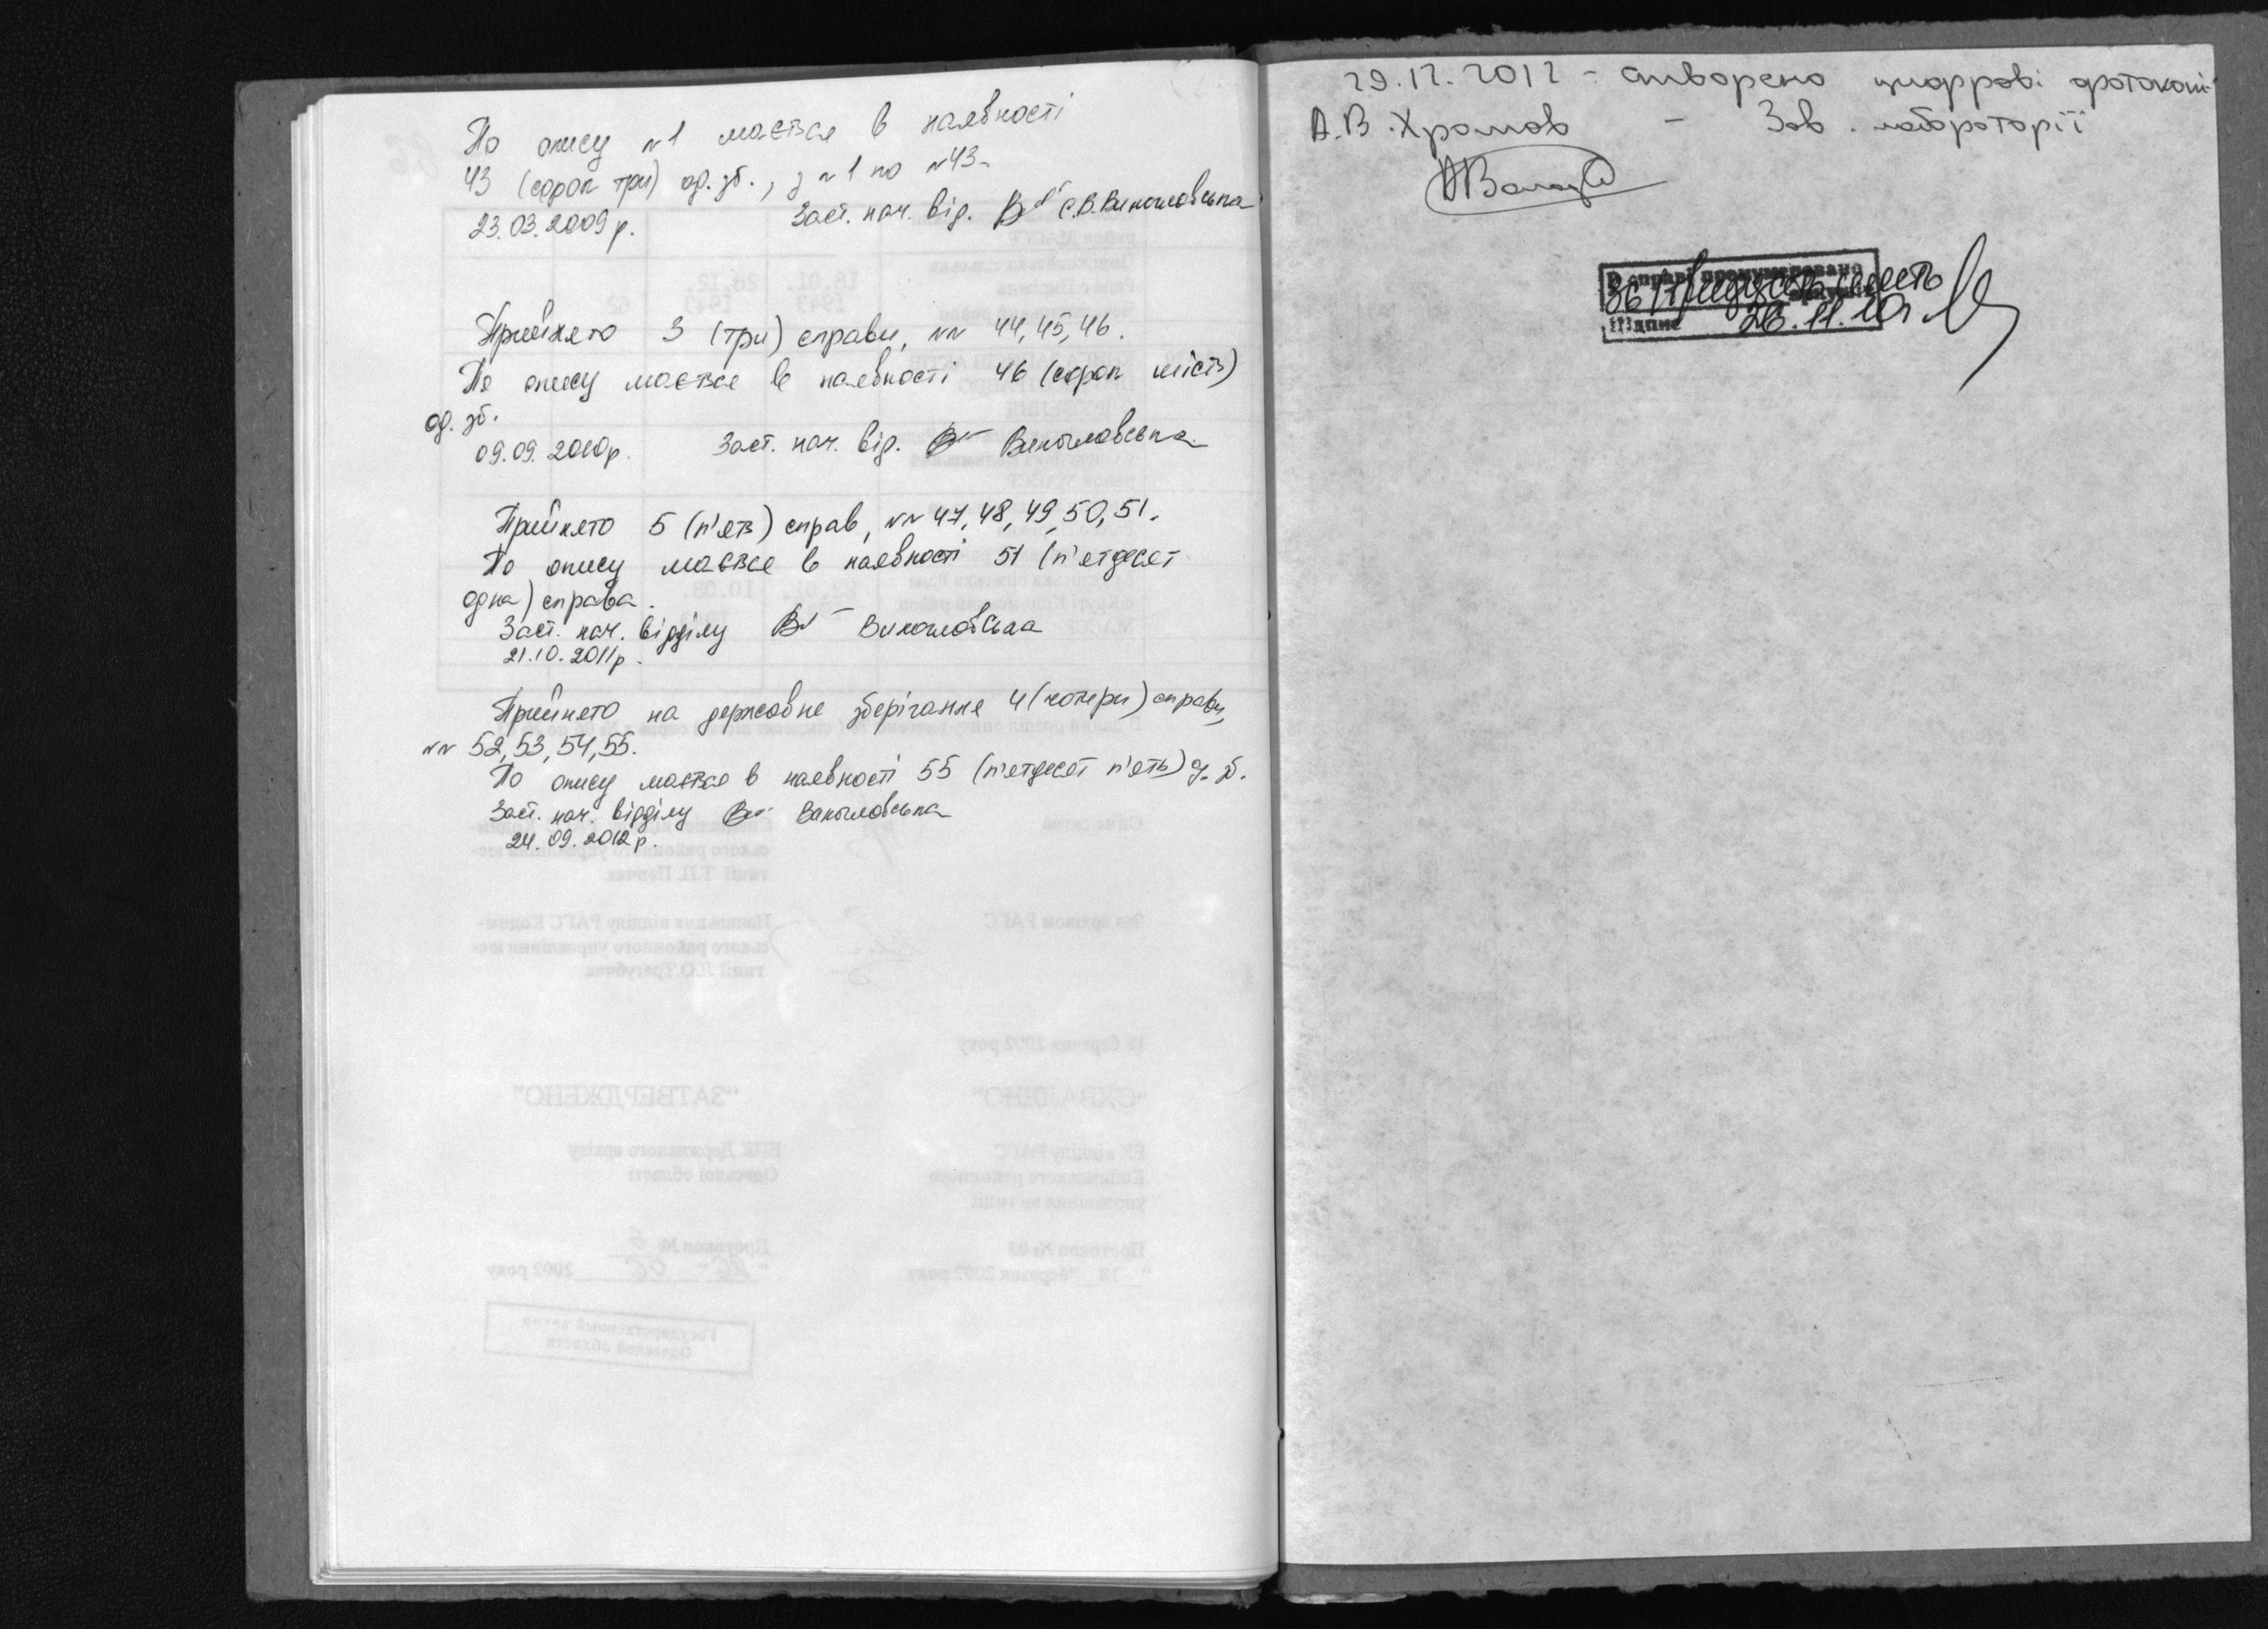 По опису №1 мається в наявності
43 (сорок три) од. зб., з №1 по №43.
23.03.2009 р. Заст. нач. від. С.В.
Прийнято 3 (три) справи, №№ 44, 45, 46.
По опису мається в наявності 46 (сорок шість)
од. зб.
09.09.2010р. Заст. нач. від.
Прийнято 5 (п'ять) справ, №№ 47, 48, 49, 50, 51.
По опису мається в наявності 51 (п'ятдесят
одна) справа.
Заст. нач. відділу
21.10.2011р.
Прийнято на державне зберігання 4 (чотири) справи,
№№ 52, 53, 54, 55.
По опису мається в наявності 55 (п'ятдесят п'ять) од. зб.
Заст. нач. відділу
24.09.2012 р.
29.12.2012 - створено цифрові фотокопії
А.В. Храмов - Зав. лабораторії
В справі пронумеровано
36 (тридцять шість
Підпис 26.11.10р.